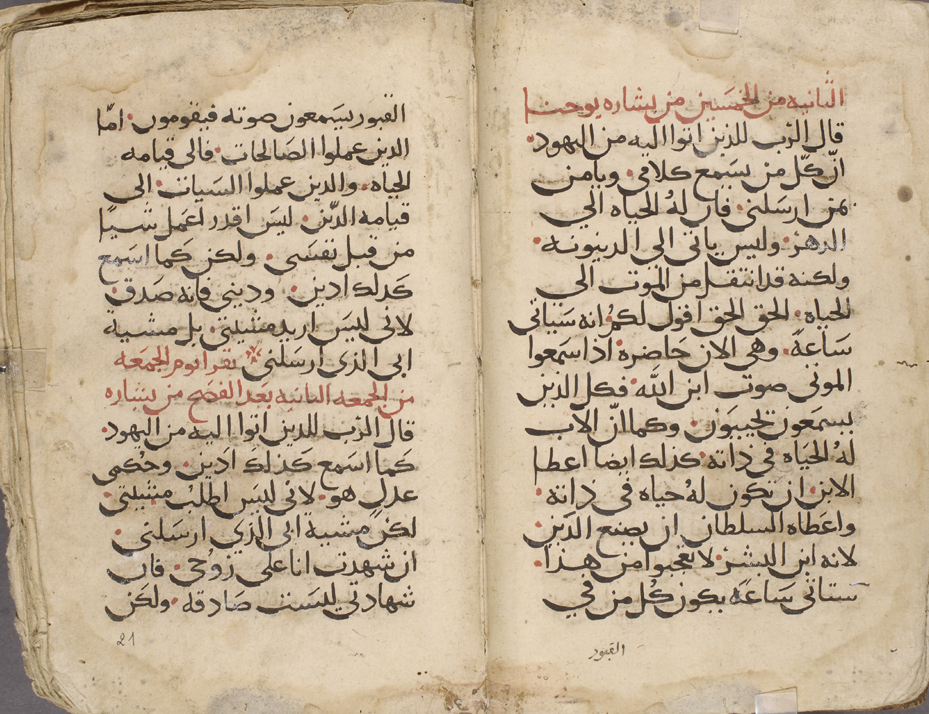 الثانيه من الخمسين من بشاره يوحنا
قال الرب للذين اتوا اليه من اليهود·
ان كل من يسمع كلامي· ويامن
بمن ارسلني· فان له الحياه الي
الدهر· وليس ياتي الي الدينونه·
ولكنه قد انتقل من الموت الي
الحياه· الحق الحق اقول لكم· انه ستاتي
ساعة· وهي الان حاضره· اذا سمعوا
الموتي صوت ابن الله· فكل الذين
يسمعون يجيبون· وكما ان الاب
له الحياه في ذاته· كذلك ايضا اعطا
الابن· ان تكون له حياه في ذاته·
واعطاه السلطان ان يصنع الدين·
لانه ابن البشر· لا تعجبوا من هذا·
ستاتي ساعة يكون كل من في
القبور
القبور يسمعون صوته فيقومون· امّا
الذين عملوا الصالحات· فالي قيامه
الحياه· والذين عملوا السيات· الي
قيامه الدّين· ليس اقدر اعمل شيًا
من قبل نفسي· ولكن كما اسمع
كذلك ادين· وديني فانه صدق·
لاني ليس اريد مشيتي· بل مشية
ابي الذي ارسلني· تقرا يوم الجمعه
من الجمعه الثانيه بعد الفصح من بشاره
قال الرب للذين اتوا اليه من اليهود·
كما اسمع كذلك ادين· وحكمي
عدل هو· لاني ليس اطلب مشيتي·
لكن مشية ابي الذي ارسلني·
ان شهدت انا علي روحي· فان
شهادتي ليست صادقه· ولكن
21